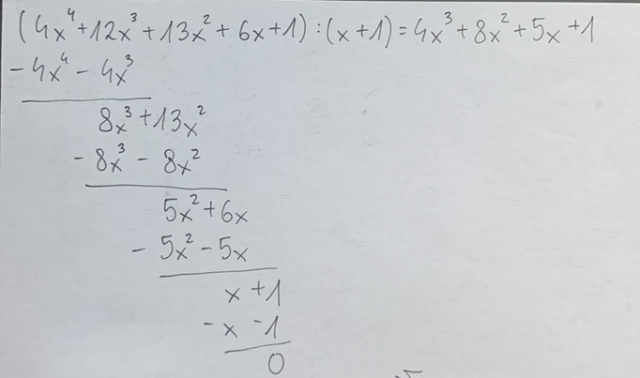 (4x⁴+12x³+13x²+6x+1):(x+1)=4x³+8x²+5x+1
-4x⁴-4x³
8x³+13x²
-8x³-8x²
5x²+6x
-5x²-5x
x+1
-x-1
0